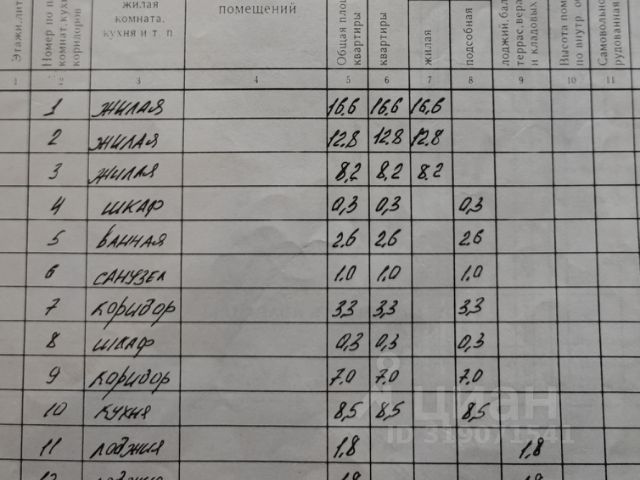 Этажи, лит
Номер по п
комнат, кух
коридоров
жилая
комната,
кухня и т п
помещений
Общая пло
квартиры
квартиры
жилая
подсобная
лоджий, бал
террас, вера
и кладовых
Высота пом
по внутр об
Самовольно
рудованная
1 3 4 5 6 7 8 9 10 11
1 жилая 16,6 16,6 16,6
2 жилая 12,8 12,8 12,8
3 жилая 8,2 8,2 8,2
4 шкаф 0,3 0,3 0,3
5 ванная 2,6 2,6 2,6
6 санузел 1,0 1,0 1,0
7 коридор 3,3 3,3 3,3
8 шкаф 0,3 0,3 0,3
9 коридор 7,0 7,0 7,0
10 кухня 8,5 8,5 8,5
11 лоджия 1,8 1,8
циан
ID 319071541